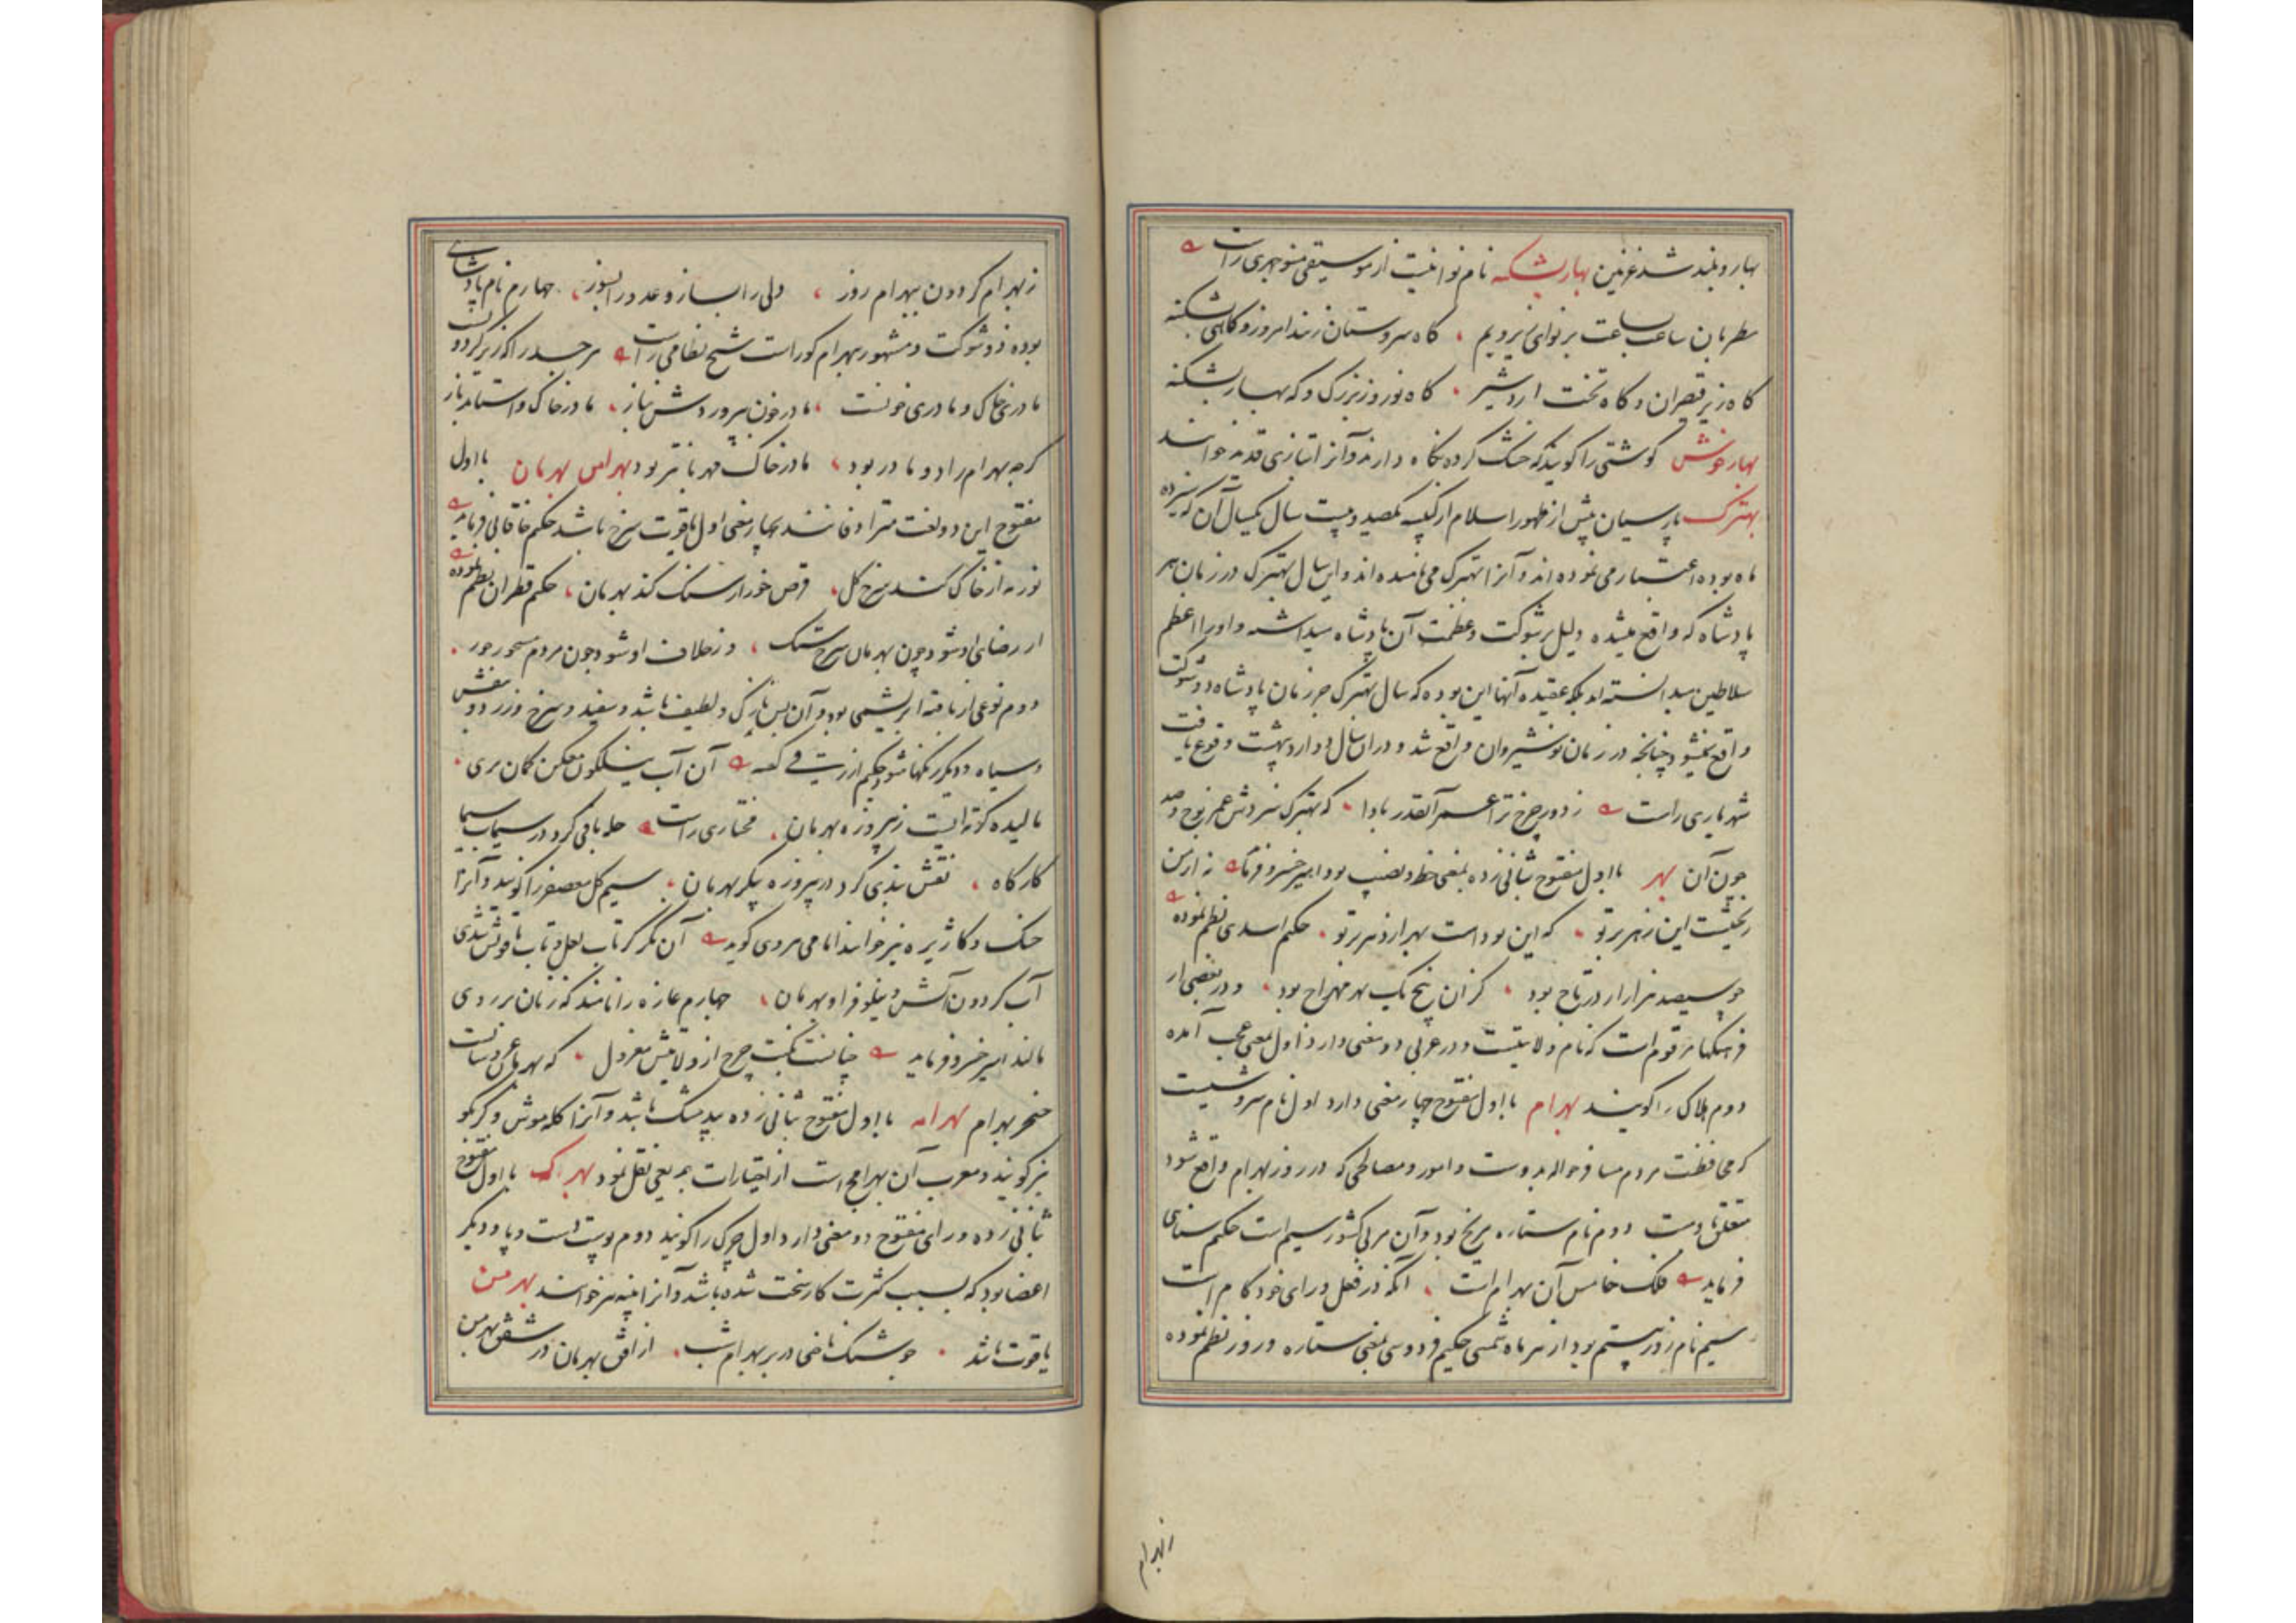 بهار و بلند شد غزنین بهار بشکنه نام نوائیست از موسیقی منوچهری راست
مطربان ساعت بساعت بر نوای زیر و بم کاه سروستان زنند امروز و کاهی بشکنه
کاه زیر قیصران و کاه تخت اردشیر کاه نوروز بزرک و که بهار بشکنه
بهار خوش کوشتی را کویند که خشک کرده نکاه دارند و آنرا بتازی قدید خوانند
بهترک پارسیان پیش از ظهور اسلام از کبیسه یکصد و بیست سال یکسال آن که سیزده
ماه بوده اعتبار می نموده اند و آنرا بهترک می نامیده اند و این سال بهترک در زمان هر
پادشاه که واقع میشده دلیل بر شوکت و عظمت آن پادشاه میدانسته و او را اعظم
سلاطین میدانسته اند بلکه عقیده آنها این بوده که سال بهترک جز زمان پادشاه ذو شوکت
واقع نمیشود چنانچه در زمان نوشیروان واقع شد و در آن سال دو اردیبهشت وقوع یافت
شهریاری راست ز دور چرخ ترا عمر آنقدر بادا که بهترک شمردش عمر نوح و صد
چون آن بهر با اول مفتوح بثانی زده بمعنی حظ و نصیب بود امیر خسرو فرماید نه از من
ریختست این زهر بر تو که این بوداست بهر از دهر بر تو حکیم اسدی نظم نموده
چو سیصد هزار از در تاج بود کزان پنج یک بهر مهراج بود و در بعضی از
فرهنگها مرقوم است که نام ولایتیست و در عربی دو معنی دارد اول بمعنی عجب آمده
دوم هلاک را کویند بهرام با اول مفتوح چهار معنی دارد اول نام سروشیست
که محافظت مردم مسافر حواله بدوست و امور و مصالحی که در روز بهرام واقع شود
متعلق باوست دوم نام ستاره مریخ بود و آن مربی کشور سیم است حکیم سنائی
فرماید فلک خامس آن بهرام است آنکه در فعل و رای خود کام است
سیم نام روز بیستم بود از هر ماه شمسی حکیم فردوسی بمعنی ستاره و روز نظم نموده
زبهرام
ز بهرام کردون ببهرام روز ولی را بساز و عدو را بسوز چهارم نام پادشاهی
بوده ذو شوکت و مشهور بهرام کور است شیخ نظامی راست هر جسد را که زیر کردونست
مادری خاک و مادری خونست مادر خون بپروردش بناز مادر خاک واستاند باز
کرچه بهرام را دو مادر بود مادر خاک مهربانتر بود بهرامن بهرمان با اول
مفتوح این دو لغت مترادفانند بچهار معنی اول یاقوت سرخ باشد حکیم خاقانی فرماید
نور مه از خاک کند سرخ کل قرص خور از سنک کند بهرمان حکیم قطران نظم نموده
از رضای او شود چون بهرمان سرخ سنک وز خلاف او شود چون مردم مسحور حور
دوم نوعی از بافته ابریشمی بود و آن بس نازک و لطیف باشد و سفید و سرخ و زرد و بنفش
و سیاه و دیکر رنکها شود حکیم ازرقی کفته آن آب نیلکون معکن کمان بری
مالیده کوته ایست ز پیروزه بهرمان مختاری راست حله بافی کرد در سیماب سیما
کارکاه نقش بندی کرد در پیروزه پیکر بهرمان سیم کل معصفر را کویند و آنرا
خسک و کاژیره نیز خوانند امامی هروی کوید آن نکر کز تاب لعل و تاب یاقوتش شدی
آب کردون آتش و نیلوفر او بهرمان چهارم غازه را نامند که زنان بر روی
مالند امیر خسرو فرماید چنانست نکبت چرخ از ولایتش معزول که بهرمان عروسانست
خنجر بهرام بهرامه با اول مفتوح بثانی زده بیدمشک باشد و آنرا کله موش و کربکو
نیز کویند و معرب آن بهرامج است از اختیارات بدیعی نقل نمود بهرک با اول مفتوح
بثانی زده و رای مفتوح دو معنی دارد اول چرک را کویند دوم پوست دست و پا و دیکر
اعضا بود که بسبب کثرت کار سخت شده باشد و آنرا پینه نیز خوانند بهرمن
یاقوت باشد چو شنک قاضی در بر بهرام شب از افق بهرمان در شفق بهرمن